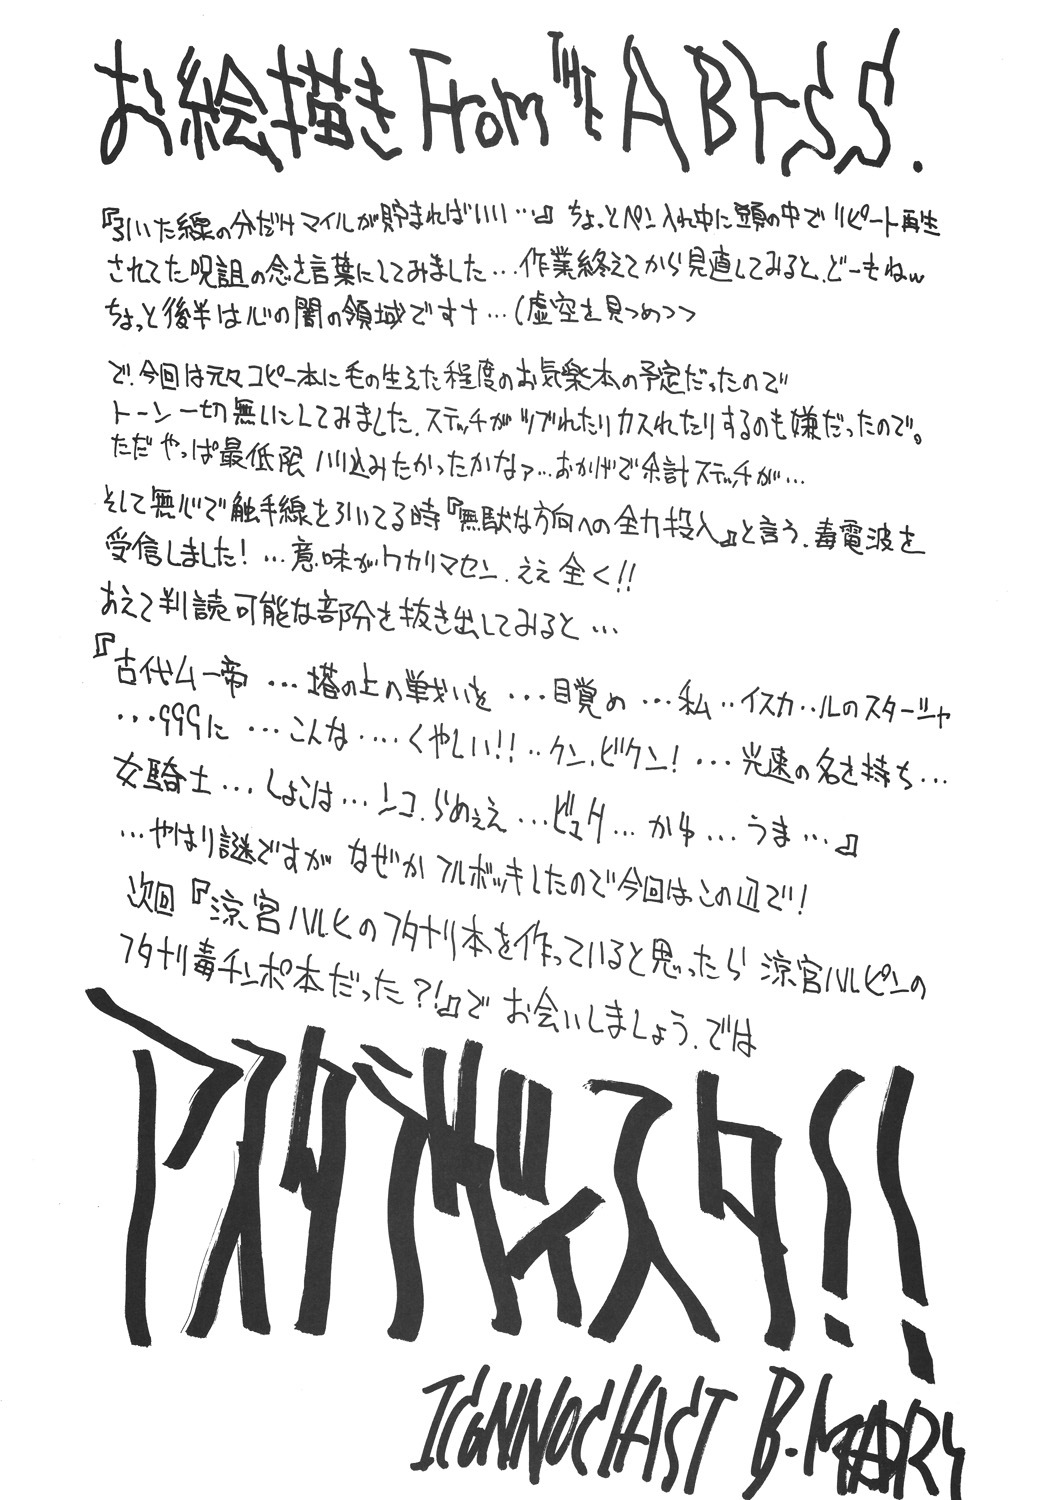 お絵描き From THE ABYSS.
『引いた線の分だけマイルが貯まればいい…』ちょっとペン入れ中に頭の中でリピート再生
されてた呪詛の念を言葉にしてみました…作業終えてから見直してみると、どーもねw
ちょっと後半は心の闇の領域です†…(虚空を見つめつつ
で、今回は元々コピー本に毛の生えた程度のお気楽本の予定だったので
トーン一切無しにしてみました、ステッチがツブれたりカスれたりするのも嫌だったので。
ただやっぱ最低限 ハリ込みたかったかなァ…おかげで余計ステッチが…
そして無心で触手線を引いてる時『無駄な方向への全力投入』と言う、毒電波を
受信しました!…意味がワカリマセン、ええ全く!!
あえて判読可能な部分を抜き出してみると…
『古代ムー帝…塔の上の戦いを…目覚め…私‥イスカ‥ルのスタージャ
…999に…こんな‥‥くやしい!!‥クン、ビクン!…光速の名を持ち…
女騎士…しょこは…ンコ、らめぇえ…ビュク…かゆ…うま…』
…やはり謎ですが なぜかフルボッキしたので今回はこの辺で!
次回『涼宮ハルヒのフタナリ本を作っていると思ったら涼宮ハルピンの
フタナリ毒チンポ本だった?!』で お会いしましょう、では
アスタラビスタ!!
ICONNOCLAST B.MARY